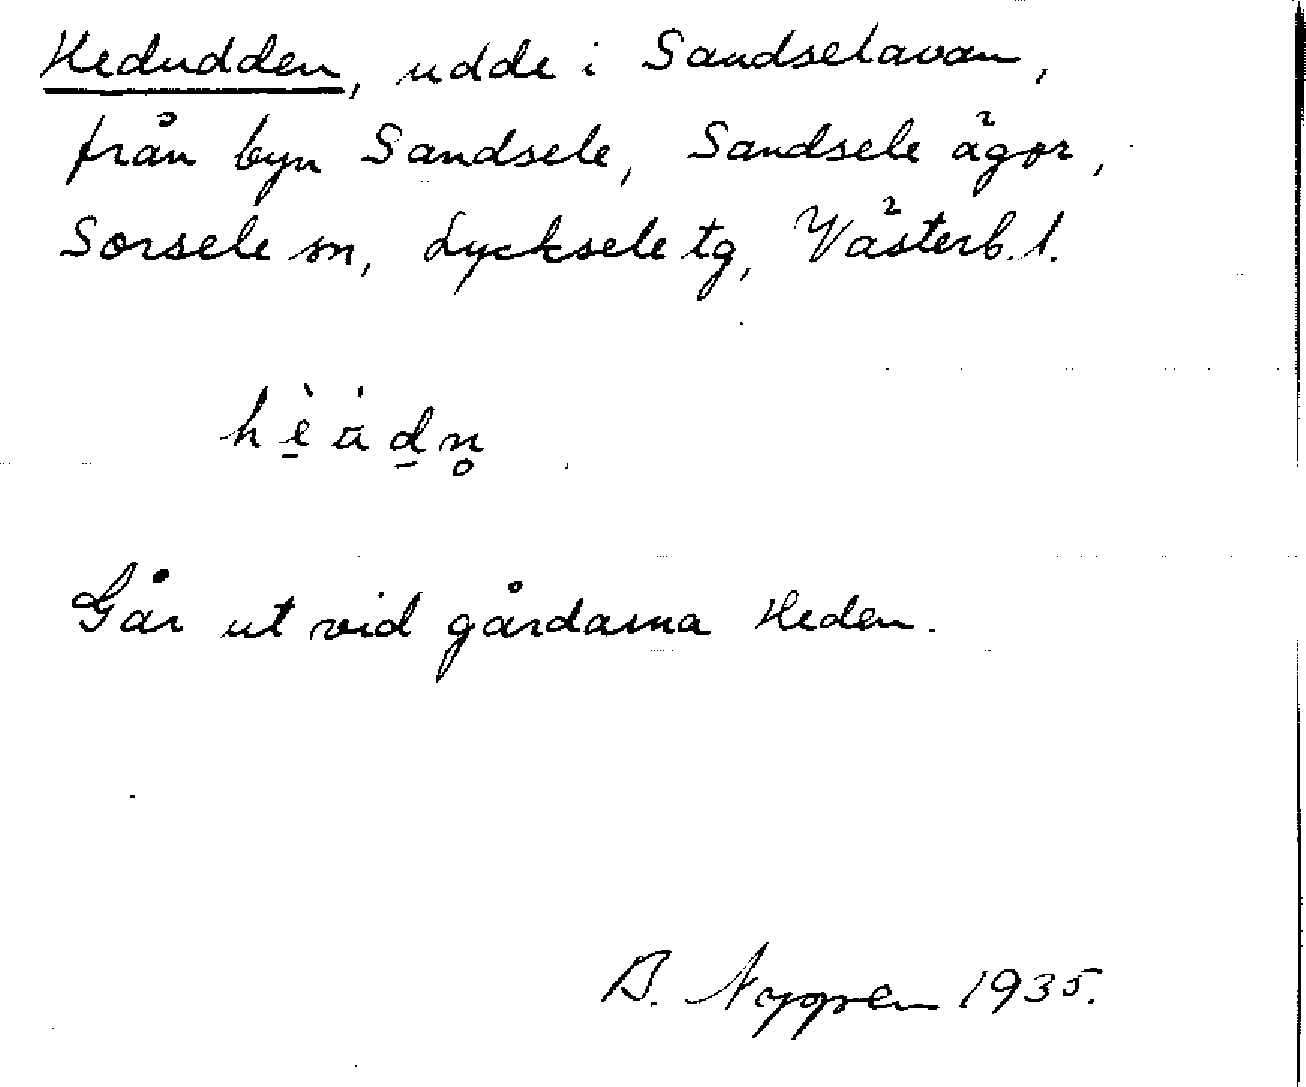 Hedudden, udde i Sandselavan,
från byn Sandsele, Sandsele ägor,
Sorsele sn, Lycksele tg, Västerb. l.
hè̱ȧḏn̥
Går ut vid gårdarna Heden.
B. Nygren 1935.